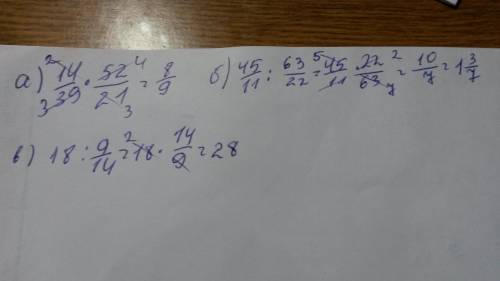 а) 14/39 · 52/21 = 8/9 б) 45/11 : 63/22 = 45/11 · 22/63 = 10/7 = 1 3/7
в) 18 : 9/14 = 18 · 14/9 = 28